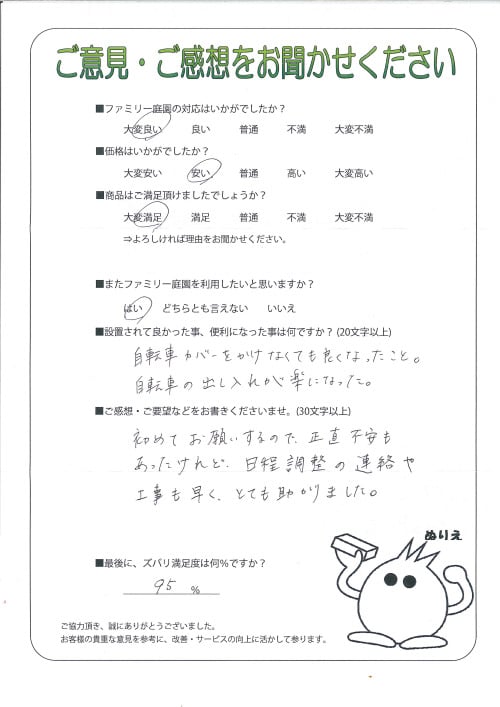 ご意見・ご感想をお聞かせください
■ファミリー庭園の対応はいかがでしたか？
大変良い 良い 普通 不満 大変不満
■価格はいかがでしたか？
大変安い 安い 普通 高い 大変高い
■商品はご満足頂けましたでしょうか？
大変満足 満足 普通 不満 大変不満
⇒よろしければ理由をお聞かせください。
■またファミリー庭園を利用したいと思いますか？
はい どちらとも言えない いいえ
■設置されて良かった事、便利になった事は何ですか？ (20文字以上)
自転車カバーをかけなくても良くなったこと。
自転車の出し入れが楽になった。
■ご感想・ご要望などをお書きくださいませ。(30文字以上)
初めてお願いするので、正直不安も
あったけれど、日程調整の連絡や
工事も早く、とても助かりました。
ぬりえ
■最後に、ズバリ満足度は何％ですか？
95 %
ご協力頂き、誠にありがとうございました。
お客様の貴重な意見を参考に、改善・サービスの向上に活かして参ります。